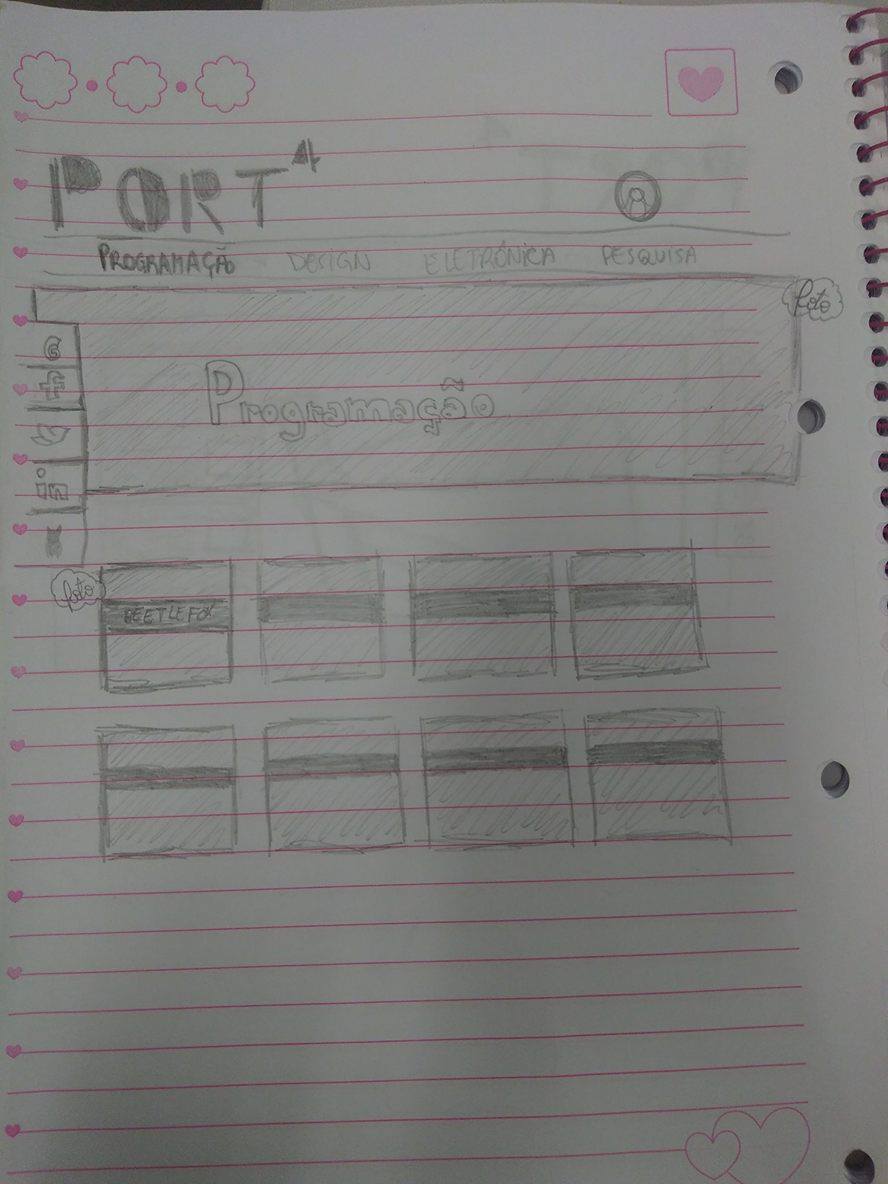 PORT⁴
PROGRAMAÇÃO DESIGN ELETRÔNICA PESQUISA
foto
Programação
f
in
foto
BEETLE FOX